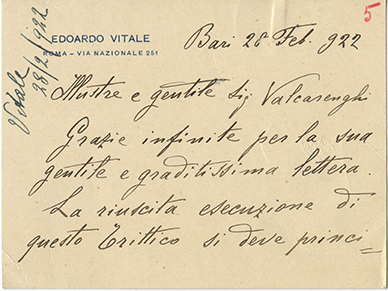 5
Vitale
28/2/922
EDOARDO VITALE
ROMA - VIA NAZIONALE 251
Bari 28 Feb. 922
Illustre e gentile Sig Valcarenghi
Grazie infinite per la sua
gentile e graditissima lettera.
La riuscita esecuzione di
questo Trittico si deve princi=